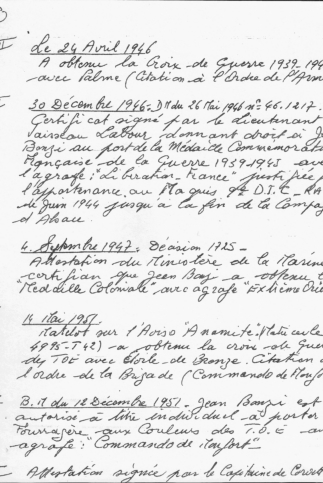 Le 24 Avril 1946
A obtenu la Croix de Guerre 1939-194
avec Palme (Citation à l'Ordre de l'Arm
30 Décembre 1946 - DM du 26 Mai 1946 n° 46.1217.
Certificat signé par le Lieutenant
Vaisseau Labour donnant droit à J
Bonzi au port de la Médaille Commémorat
Française de la Guerre 1939-1945 ave
l'agrafe: "Libération - France" justifiée p
l'appartenance au Maquis 9e D.I.C - RA
de Juin 1944 jusqu'à la fin de la Campag
d'Alsace.
4. Septembre 1947: Décision 1725 -
Attestation du Ministère de la Marine
certifian que Jean Bonzi a obtenu l
"Médaille Coloniale" avec agrafe "Extrème Orie
14 Mai 1951.
Matelot sur l'Aviso "Anamite: Matricule
4895-T42) - a obtenu la croix de Guer
du TOE avec Etoile de Bronze. Citation à
l'ordre de la Brigade (Commando de Monfo
B.M du 12 Décembre 1951 - Jean Bonzi est
autorisé à titre individuel à porter
Fourragère aux Couleurs des T.O.E au
agrafe: "Commando de Monfort".
Attestation signée par le Capitaine de Corvet